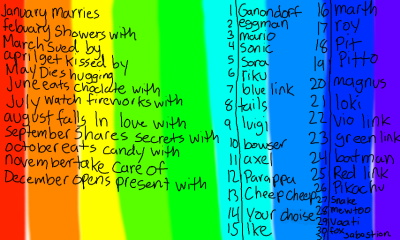 january marries
febuary showers with
March sued by
april get kissed by
May Dies hugging
June eats choclate with
July watch fireworks with
august falls In love with
September Shares secrets with
october eats candy with
november take care of
December opens present with
1 Ganondorf
2 eggman
3 mario
4 sonic
5 Sora
6 riku
7 blue link
8 tails
9 luigi
10 bowser
11 axel
12 Parappa
13 Cheep cheep
14 Your choise
15 Ike
16 marth
17 roy
18 Pit
19 Pitto
20 magnus
21 loki
22 vio link
23 green link
24 batman
25 Red link
26 Pikachu
27 snake
28 mewtoo
29 Vaati
30 fox
31 Sabastian